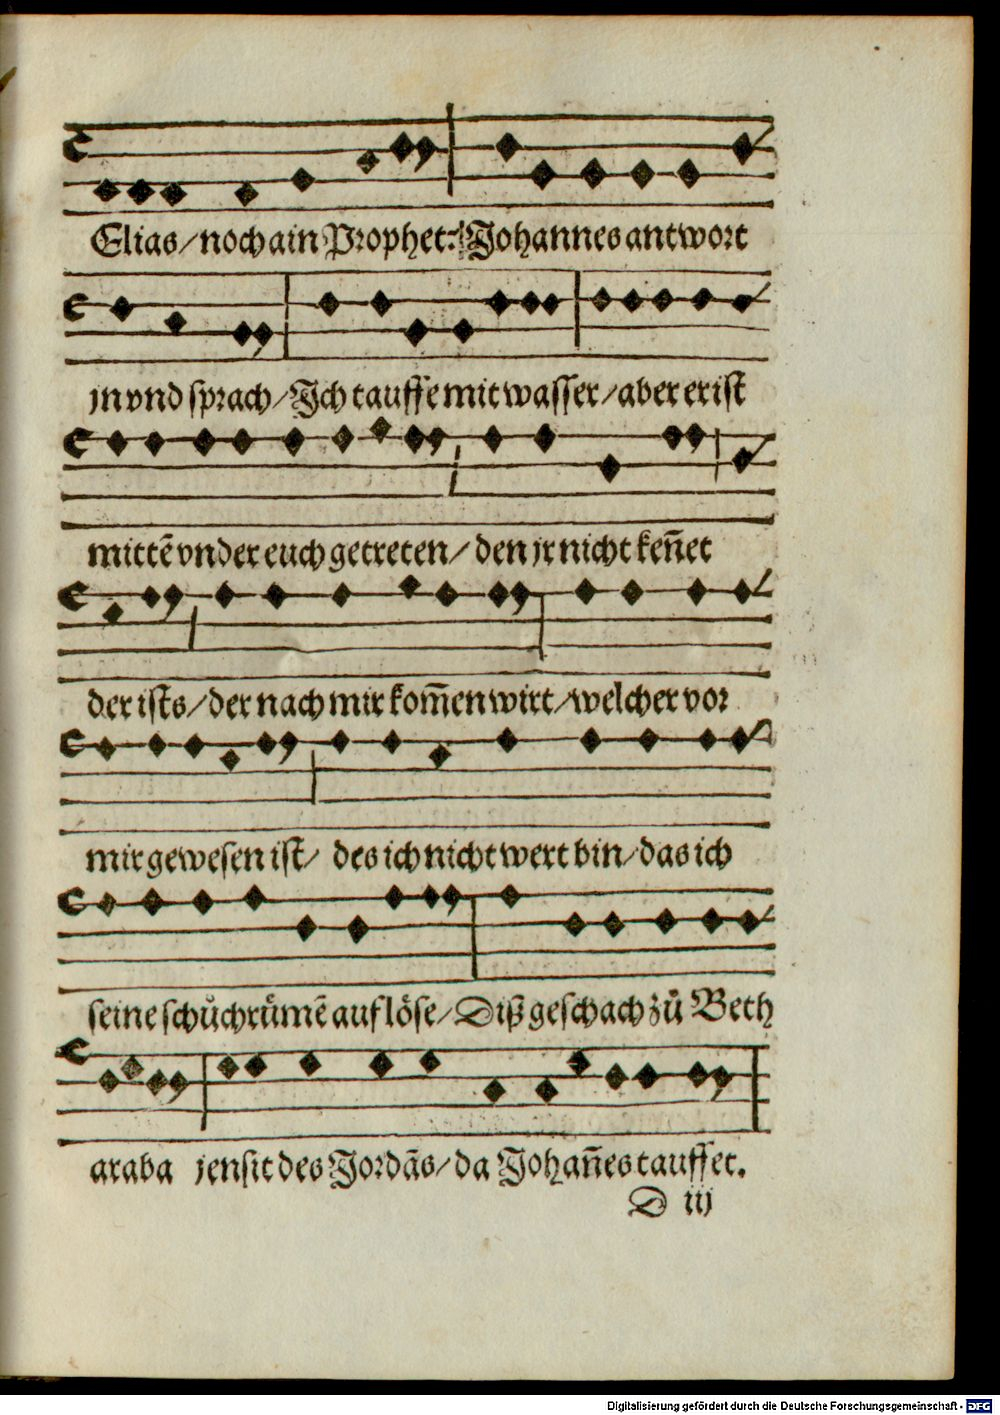 Elias/ noch ain Prophet? Johannes antwort
jn vnd sprach/ Jch tauffe mit wasser/ aber er ist
mittẽ vnder euch getreten/ den jr nicht keñet
der ists/ der nach mir kom̃en wirt/ welcher vor
mir gewesen ist/ des ich nicht wert bin/ das ich
seine schuͦchruͤmẽ auf loͤse/ Diß geschach zuͦ Beth
araba jensit des Jordãs/ da Johañes tauffet.
D iij
Digitalisierung gefördert durch die Deutsche Forschungsgemeinschaft - DFG